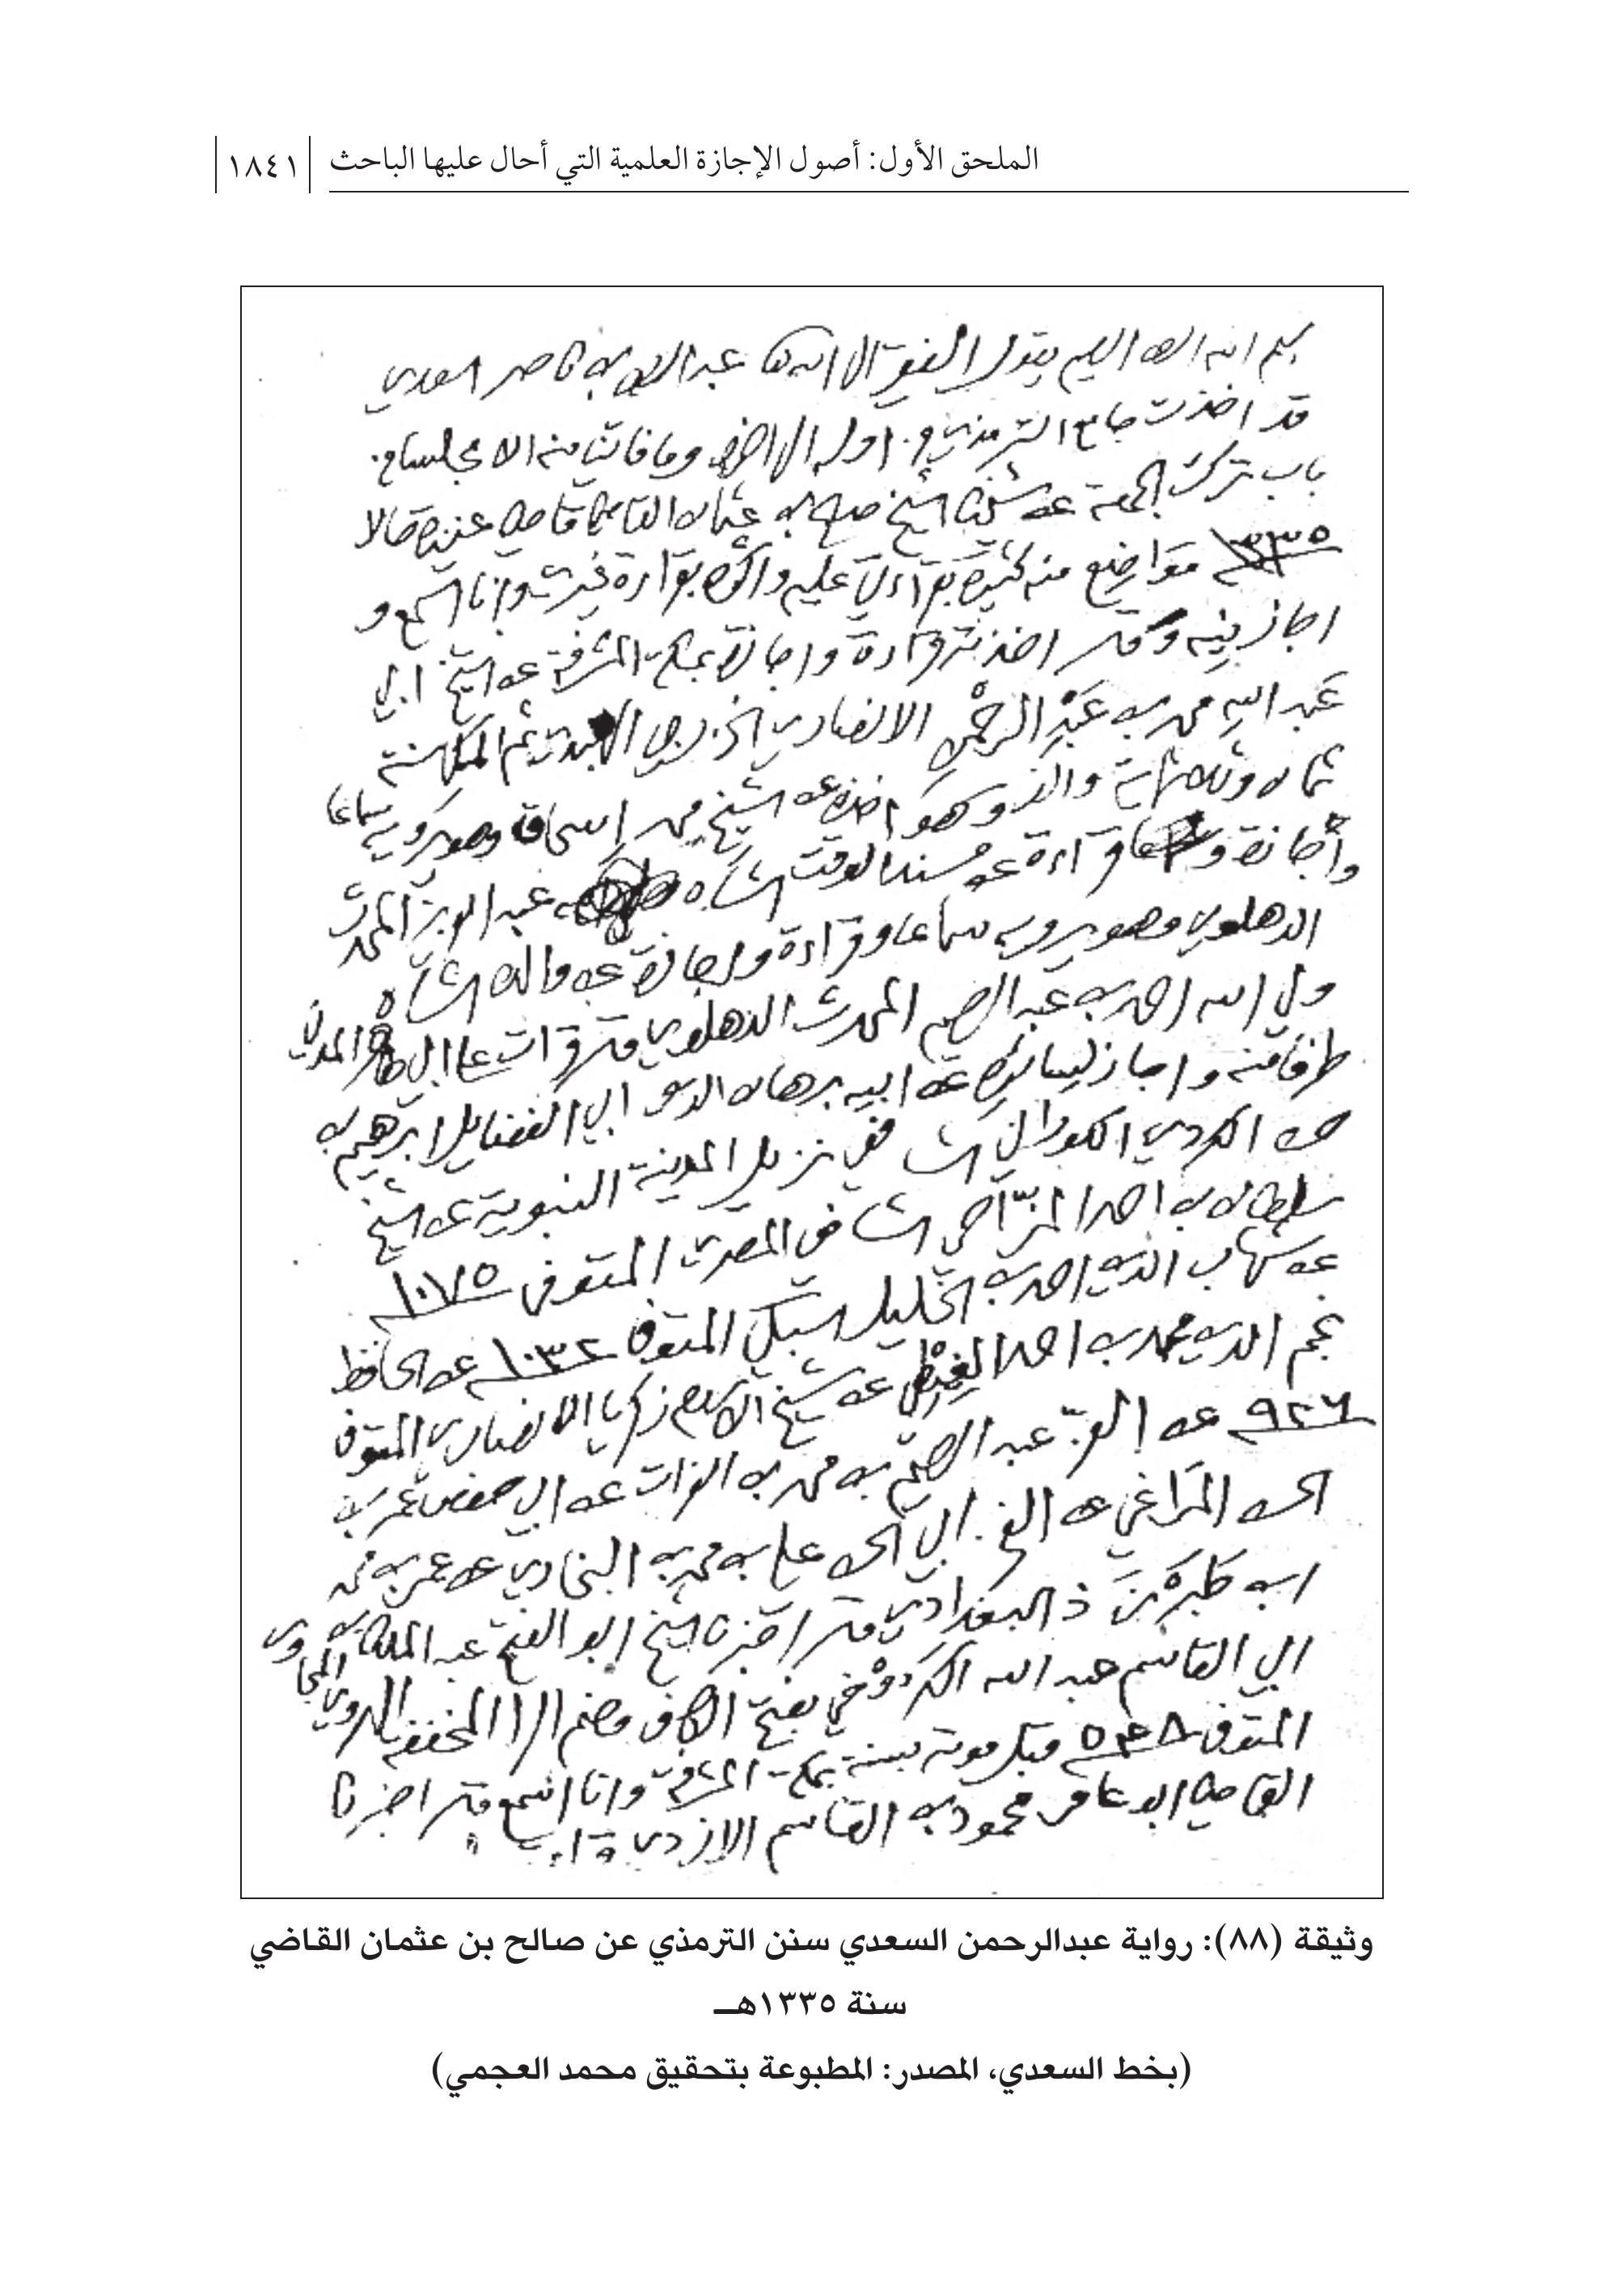 الملحق الأول: أصول الإجازة العلمية التي أحال عليها الباحث
١٨٤١
بسم الله الرحمن الرحيم يقول الفقير الى الله عبد الرحمن بن ناصر السعدي
قد اخذت جامع الترمذي من اوله الى اخره وما فاتنا منه الا مجلسا من
باب ترك الجمعة عن شيخنا الشيخ صالح بن عثمان القاضي قاضي عنيزة حالا
١٣٣٥ مواضع منه كثيرة بقراءتي عليه واكثره بقراءة غيري وانا اسمع و
اجازنيه وقال اخذته قراءة واجازة بمكة المشرفة عن الشيخ ابي
عبد الله محمد بن عبد الرحمن الانصاري الخزرجي ثم المكي سنة
ثمان وثلاثمائة والف وهو اخذه عن الشيخ محمد اسحاق وهو يرويه سماعا
واجازة وقراءة عن مسند الوقت الشاه عبد العزيز المحدث
الدهلوي وهو يرويه سماعا وقراءة واجازة عن والده الشاه
ولي الله احمد بن عبد الرحيم المحدث الدهلوي قال قرات على ابي طاهر المدني
طرفا منه واجاز لسائره عن ابيه برهان الدين ابي الفضايل ابرهيم بن
حسن الكردي الكوراني الشافعي نزيل المدينة النبوية عن الشيخ
سلطان بن احمد المزاحي الشافعي المصري المتوفى ١٠٧٥
عن شهاب الدين احمد بن الخليل السبكي المتوفى ١٠٣٢ عن الحافظ
نجم الدين محمد بن احمد الغيطي عن شيخ الاسلام زكريا الانصاري المتوفى
٩٢٦ عن العز عبد الرحيم بن محمد بن الفرات عن ابي حفص عمر بن
الحسن المراغي عن الفخر ابي الحسن علي بن محمد بن البخاري عن عمر بن محمد
ابن طبرزذ البغدادي قال اخبرنا الشيخ ابو الفتح عبد الملك بن
ابي القاسم عبد الله الكروخي بفتح الكاف وضم الرا المخففة الهروي المجاور
المتوفى ٥٤٨ قبل موته بسنة بمكة المشرفة وانا اسمع قال اخبرنا
القاضي ابو عامر محمود بن القاسم الازدي
وثيقة (٨٨): رواية عبدالرحمن السعدي سنن الترمذي عن صالح بن عثمان القاضي
سنة ١٣٣٥هـ
(بخط السعدي، المصدر: المطبوعة بتحقيق محمد العجمي)